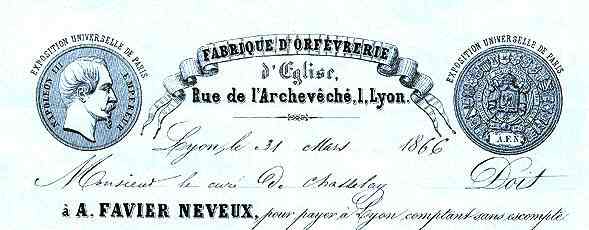 EXPOSITION UNIVERSELLE DE PARIS
NAPOLEON III EMPEREUR
FABRIQUE D'ORFÉVRERIE
d'Eglise,
Rue de l'Archevêché, 1, Lyon.
EXPOSITION UNIVERSELLE DE PARIS
A.F.N
Lyon, le 31 Mars 1866
Monsieur le curé de Chasselay Doit
à A. FAVIER NEVEUX, pour payer à Lyon comptant sans escompte